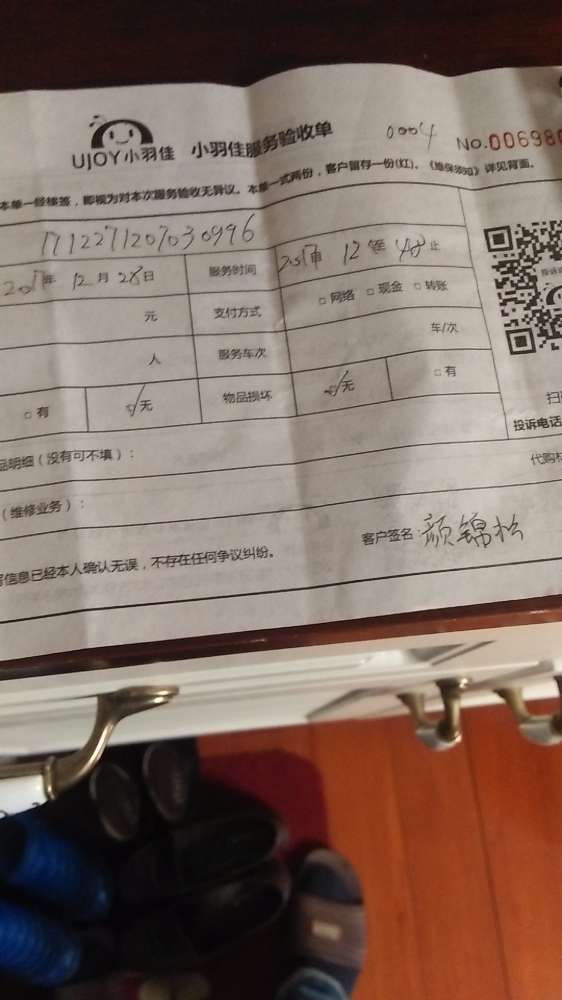 UJOY小羽佳 小羽佳服务验收单 0004 No.00698
本单一经接签，即视为对本次服务验收无异议。本单一式两份，客户留存一份(红)。《维保须知》详见背面。
1712271207030996
2017年 12月 28日 服务时间 12 止
元 支付方式 □网络 □现金 □转账
人 服务车次 车/次
□有 无 物品损坏 无 □有
品明细（没有可不填）：
投诉电话
（维修业务）：
代购
信息已经本人确认无误，不存在任何争议纠纷。
客户签名：颜锦松